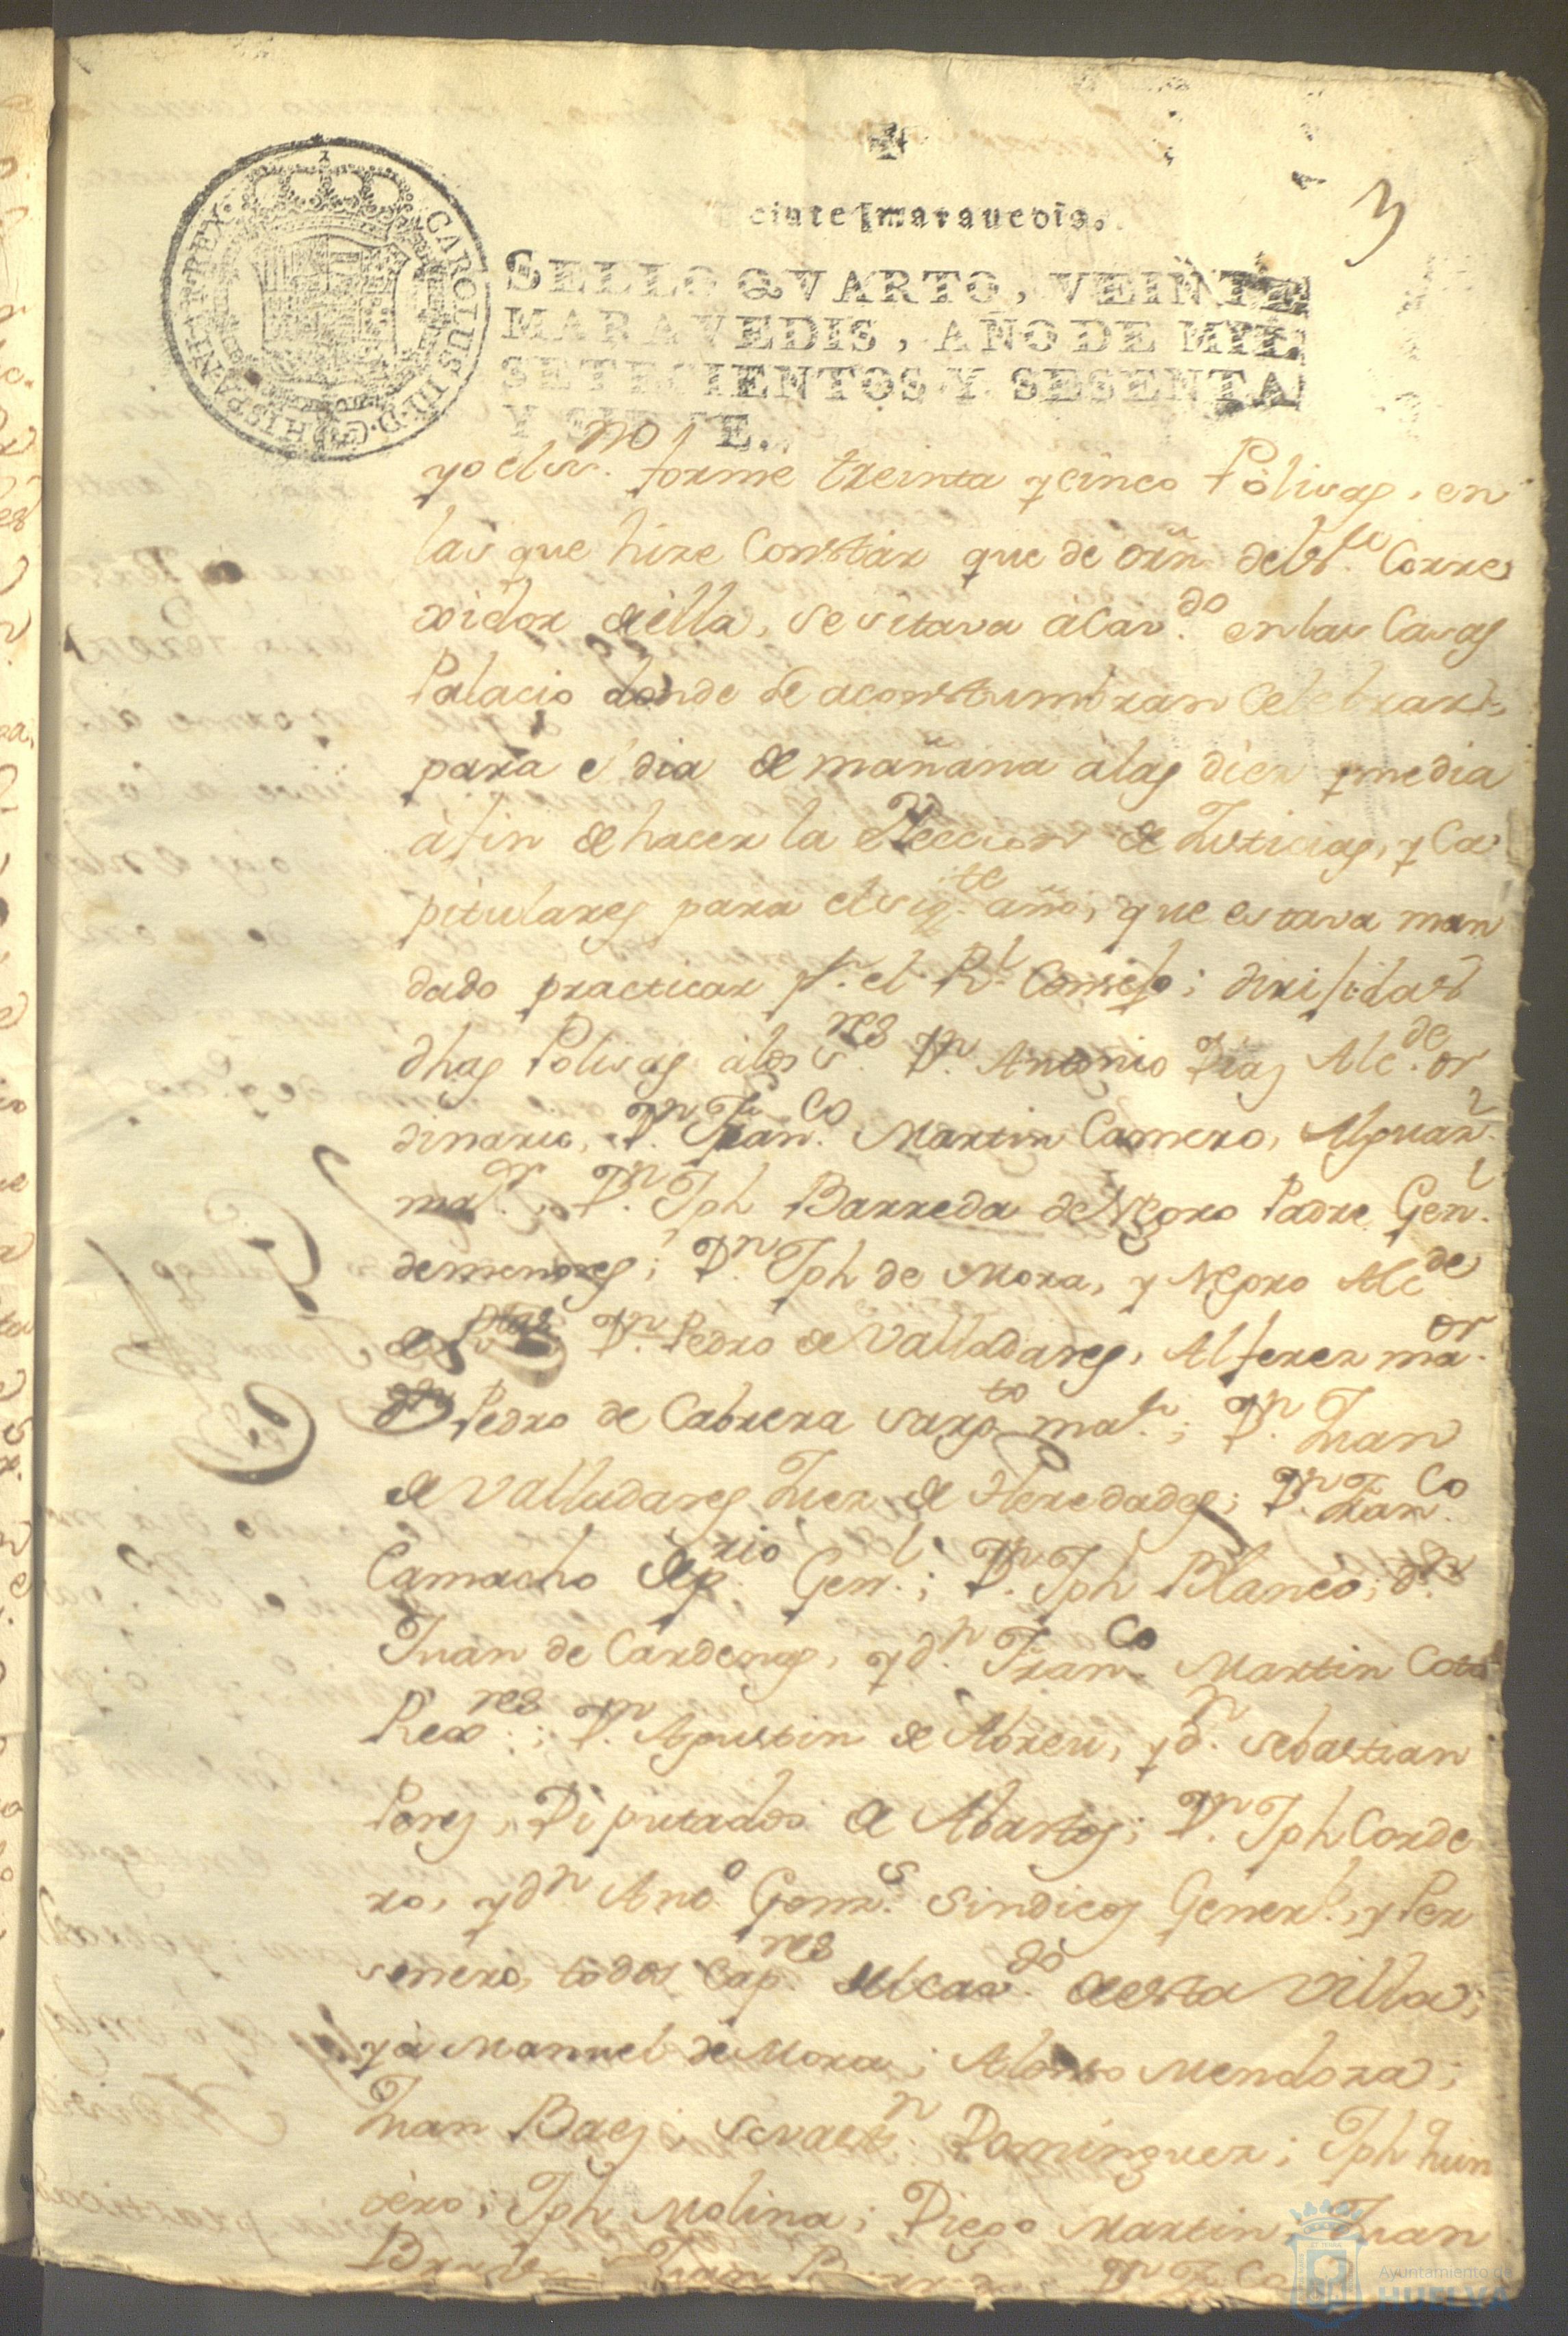 3
veinte maravedis.
SELLO QVARTO, VEINTE
MARAVEDIS, AÑO DE MIL
SETECIENTOS Y SESENTA
Y SIETE.
CAROLUS III D. G. HISPANIAR. REX.
yo el ss.no forme treinta y cinco Polisas, en
las que hize Constar que de orn del Corre
xidor de ella, se sitava à Cav.do en las Casas
Palacio donde se acostumbran Celebrar,
para el dia de mañana à las diez y media
à fin de hacer la Eleccion de Justicias, y Ca
pitulares para el sig.te año, que estava man
dado practicar p.r el R.l Consejo; dirijidas
dhas Polisas à los s.res D.n Antonio Diaz Alc.de or
dinario, D.n Fran.co Martin Camero, Alguaz.l
ma.or, D.n Jph Barreda de Negoro Padre Gen.l
de menores; D.n Jph de Mora, y Negoro Alc.de
de D.n Pedro de Valladares, Alferez ma.or
D.n Pedro de Cabrera sarg.to ma.r; D.n Juan
de Valladares Juez de Heredades; D.n Fran.co
Camacho Dep.rio Gen.l; D.n Jph Blanco; d.n
Juan de Cardenas, y d.n Fran.co Martin Coto
Rex.res; D.n Agustin de Abreu, y d.n Sebastian
Perez, Diputados de Abastos; D.n Jph Corde
ro, y d.n Ant.o Gonz.s Sindicos Gener.l, y Per
sonero, todos Cap.res del Cav.do de esta Villa;
y à Manuel de Mora; Alonso Mendoza;
Juan Baez; Sevast.n Dominguez; Jph Quin
tero; Jph Molina; Diego Martin, Juan
Juan
Ayuntamiento de
HUELVA